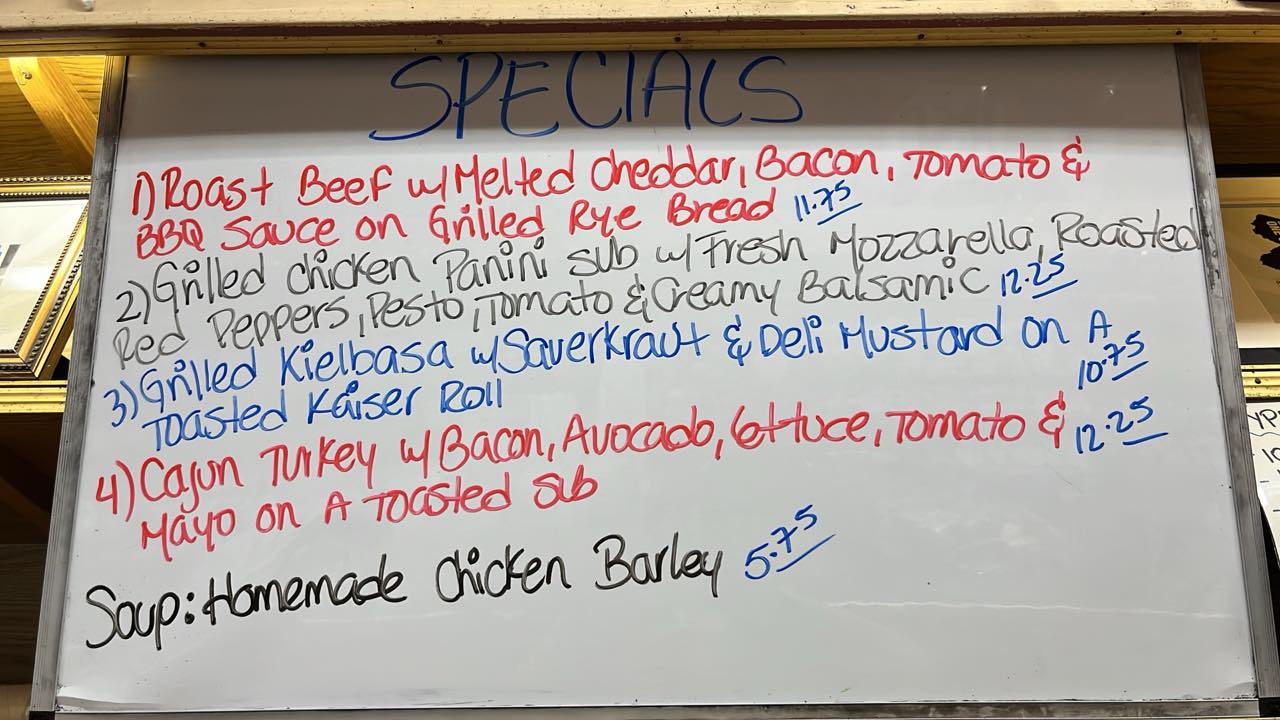 SPECIALS
1) Roast Beef w/ Melted Cheddar, Bacon, Tomato &
BBQ Sauce on Grilled Rye Bread 11.75
2) Grilled Chicken Panini Sub w/ Fresh Mozzarella, Roasted
Red Peppers, Pesto, Tomato & Creamy Balsamic 12.25
3) Grilled Kielbasa w/ Sauerkraut & Deli Mustard on A
Toasted Kaiser Roll 10.75
4) Cajun Turkey w/ Bacon, Avocado, Lettuce, Tomato & 12.25
Mayo on A Toasted Sub
Soup: Homemade Chicken Barley 5.75